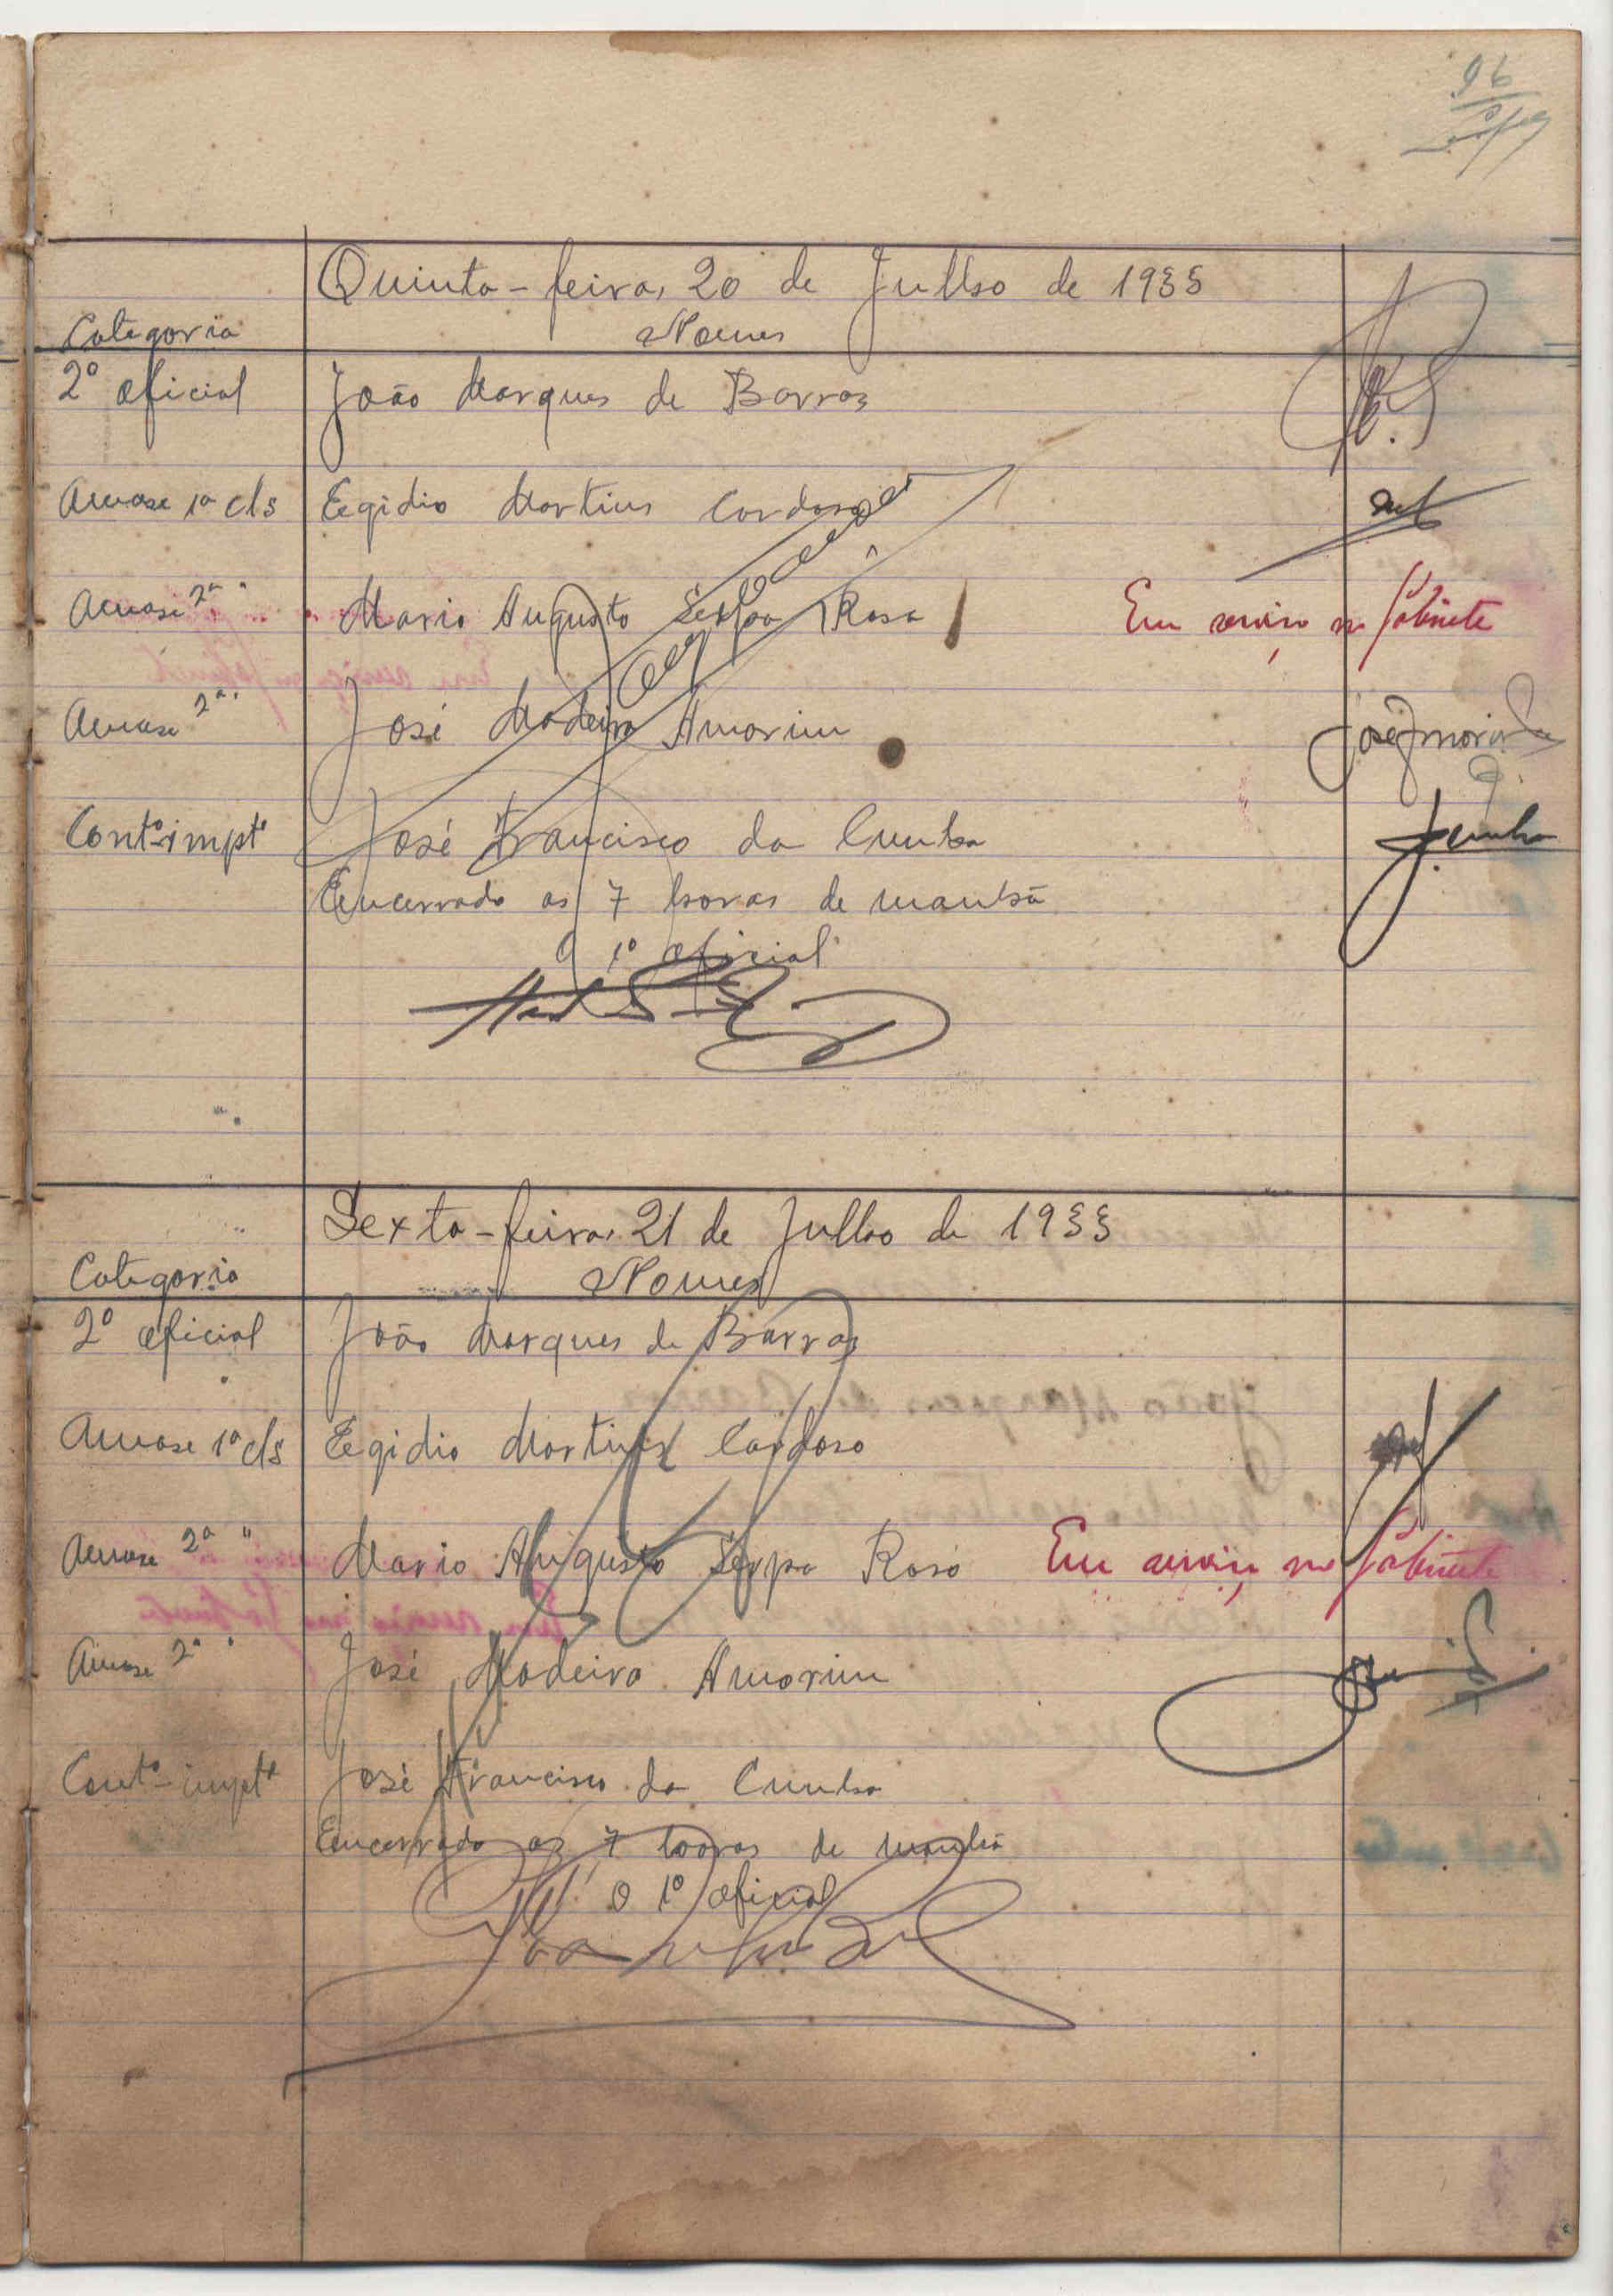 96
Quinta-feira, 20 de Julho de 1933
Categoria Nomes
2º oficial João Marques de Barros
1ª cls Egidio Martins Cardoso
2ª " Mario Augusto Serpa Rosa Em serviço no Gabinete
2ª " José Madeira Amorim José Amorim
Contº-imptº José Francisco da Cunha JCunha
Encerrado as 7 horas de manhã
O 1º oficial
Sexta-feira, 21 de Julho de 1933
Categoria Nomes
2º oficial João Marques de Barros
1ª cls Egidio Martins Cardoso
2ª " Mario Augusto Serpa Rosa Em serviço no Gabinete
2ª " José Madeira Amorim
Contº-imptº José Francisco da Cunha
Encerrado as 7 horas de manhã
O 1º oficial